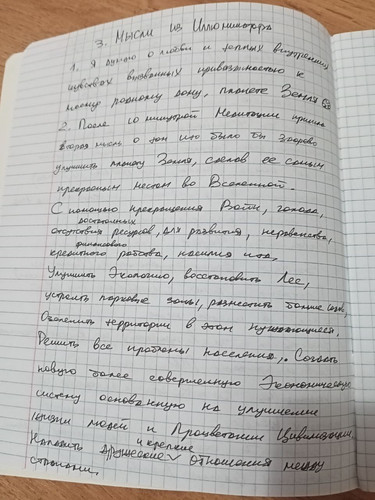 3. Мысли из Иллюминатора
1. Я думаю о любви и тёплых внутренних
чувствах вызванных привязанностью к
моему родному дому, планете Земля
2. После 10 минутной Медитации пришла
вторая мысль о том что было бы здорово
улучшить планету Земля, сделав её самым
прекрасным местом во Вселенной.
С помощью прекращения Войн, голода,
достаточных
отсутствия ресурсов, для развития, неравенства,
финансового
кредитного рабства, насилия итд,
Улучшить Экологию, восстановить Лес,
устроить парковые зоны, разместить больше
Озеленить территории в этом нуждающиеся.
Решить все проблемы населения. Создать
новую более совершенную Экономическую
систему основанную на улучшение
жизни людей и Процветании Цивилизации,
и крепкие
Наладить дружеские отношения между
странами.